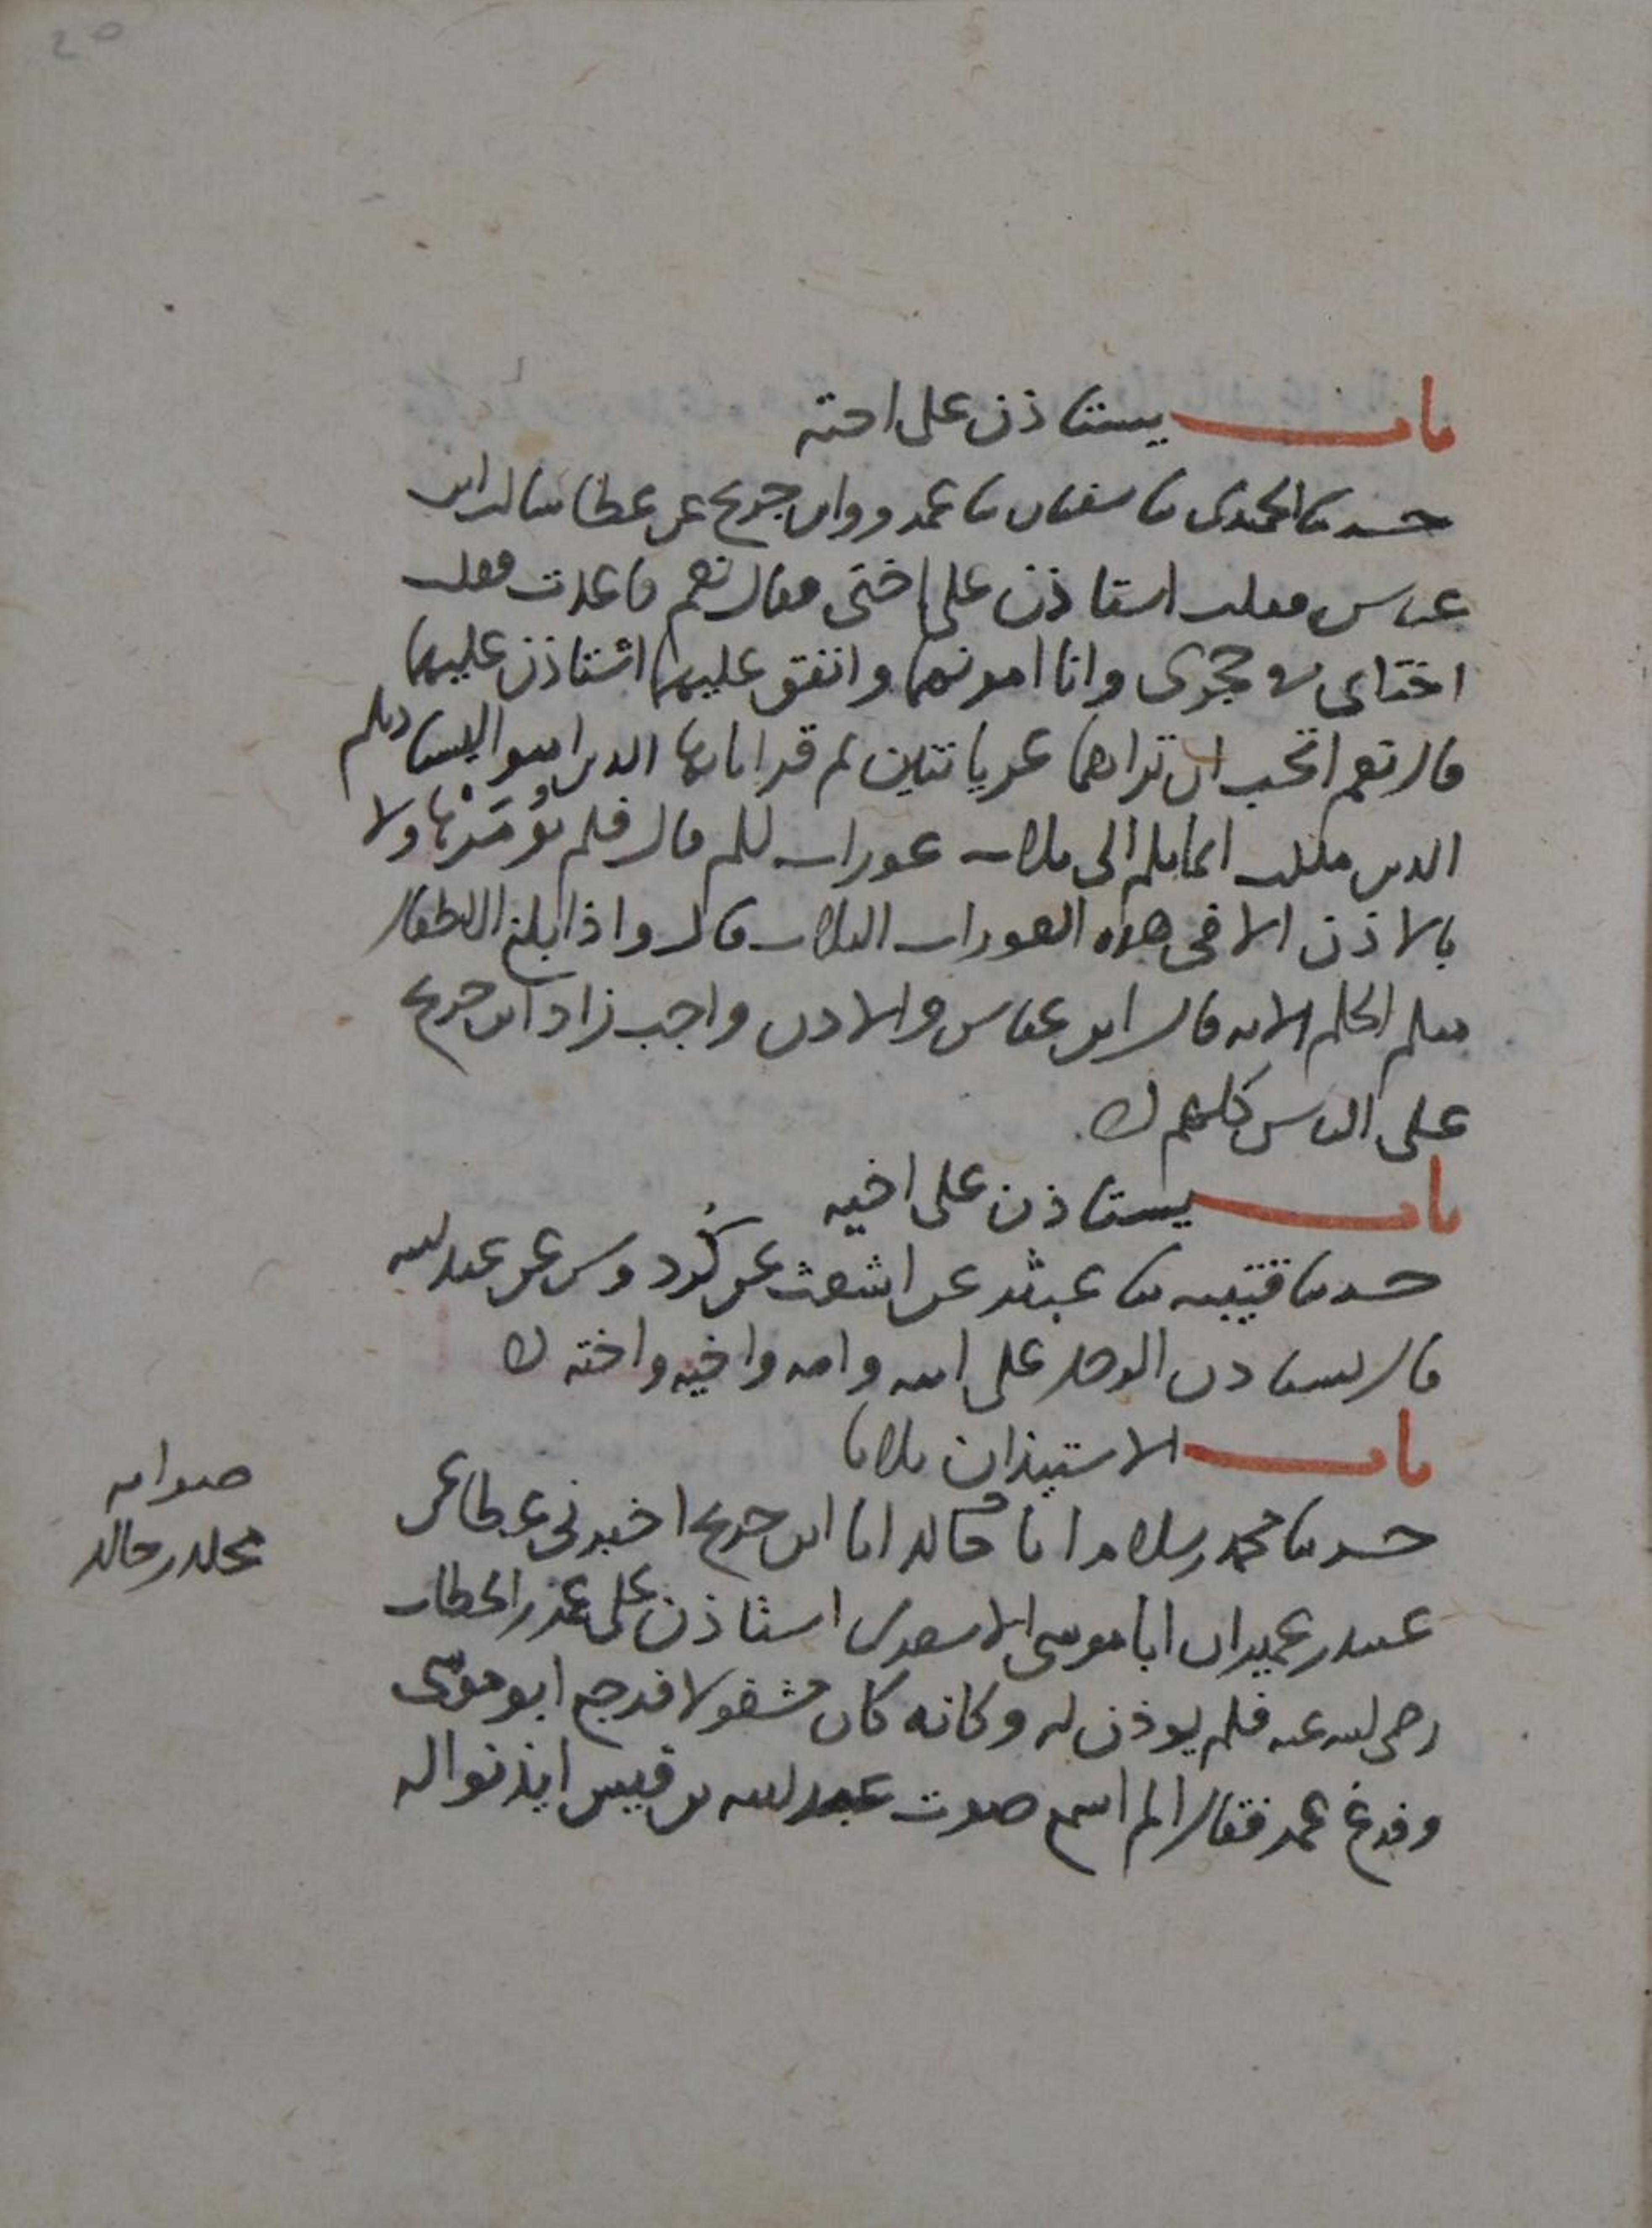 باب يستاذن على اخته
حدثنا الحميدي ثنا سفيان ثنا عمرو وابن جريج عن عطا سالت ابن
عباس فقلت استاذن على اختي فقال نعم فاعدت فقلت
اختاي في حجري وانا امونهما وانفق عليهما استاذن عليهما
قال نعم اتحب ان تراهما عريانتين ثم قرا يايها الذين امنوا ليستاذنكم
الذين ملكت ايمانكم الى ثلاث عورات لكم قال فلم يؤمر هاولا
بالاذن الا في هذه العورات الثلاث قال واذا بلغ الاطفال
منكم الحلم الايه قال ابن عباس والاذن واجب زاد ابن جريج
على الناس كلهم
باب يستاذن على اخيه
حدثنا قتيبه ثنا عبثر عن اشعث عن كُردوس عن عبد الله
قال يستاذن الرجل على ابيه وامه واخيه واخته
باب الاستيذان ثلاثا
حدثنا محمد بن سلام انا خالد انا ابن جريج اخبرني عطا عن
عبيد بن عمير ان ابا موسى الاشعري استاذن على عمر بن الخطاب
رضي الله عنه فلم يوذن له وكانه كان مشغولا فرجع ابو موسى
وفرغ عمر فقال الم اسمع صوت عبد الله بن قيس ايذنوا له
صوابه
مخلد بدل خالد
20